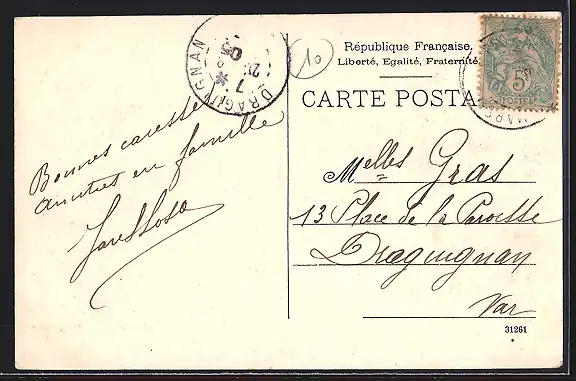 Bonnes caresses
amitiés en famille
DRAGUIGNAN
10
République Française.
Liberté, Egalité, Fraternité
CARTE POSTA
5
POSTES
Melles Gras
13 Place de la Paroisse
Draguignan
Var
31261